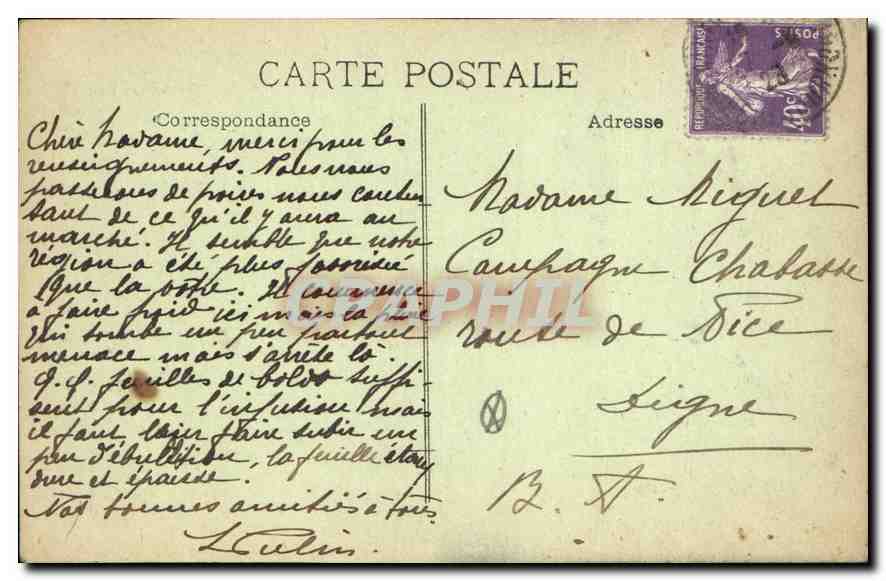 CARTE POSTALE
Correspondance
Chère Madame, merci pour les
renseignements. Nous nous
passerons de poires nous conten-
tant de ce qu'il y aura au
marché. Il semble que notre
région a été plus favorisée
que la vôtre. Il commence
à faire froid ici mais la pluie
qui tombe un peu partout
menace mais s'arrête là.
q.q. feuilles de boldo suffi-
sent pour l'infusion mais
il faut leur faire subir un
peu d'ébullition, la feuille étant
dure et épaisse.
Nos bonnes amitiés à tous.
Adresse
Madame Miquel
Campagne Chabasse
route de Nice
Digne
B. A.
REPUBLIQUE FRANÇAISE
POSTES
40c
DELCAMPHIL